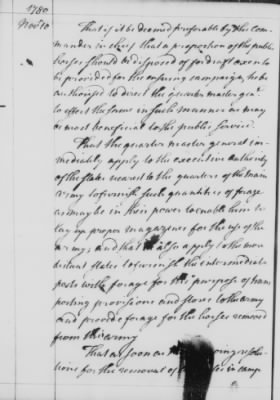 1780
Nov 10
That if it be deemed preferable by the Com-
mander in chief that a proportion of the publick
horses should be disposed of for draft oxen to
be provided for the ensuing campaign, he be
authorised to direct the quarter master genl.
to effect the same in such manner as may
be most beneficial to the public service.
That the quarter master general im-
mediately apply to the executive authority
of the states nearest to the quarters of the main
army to furnish such quantities of forage
as may be in their power to enable him to
lay up proper magazines for the use of the
army; and that also apply to the more
distant states to furnish the intermediate
posts with forage for the purpose of trans
porting provisions and stores to the army
and provide forage for the horses removed
from this army
That as soon as going resolu
tions for the removal of in camp